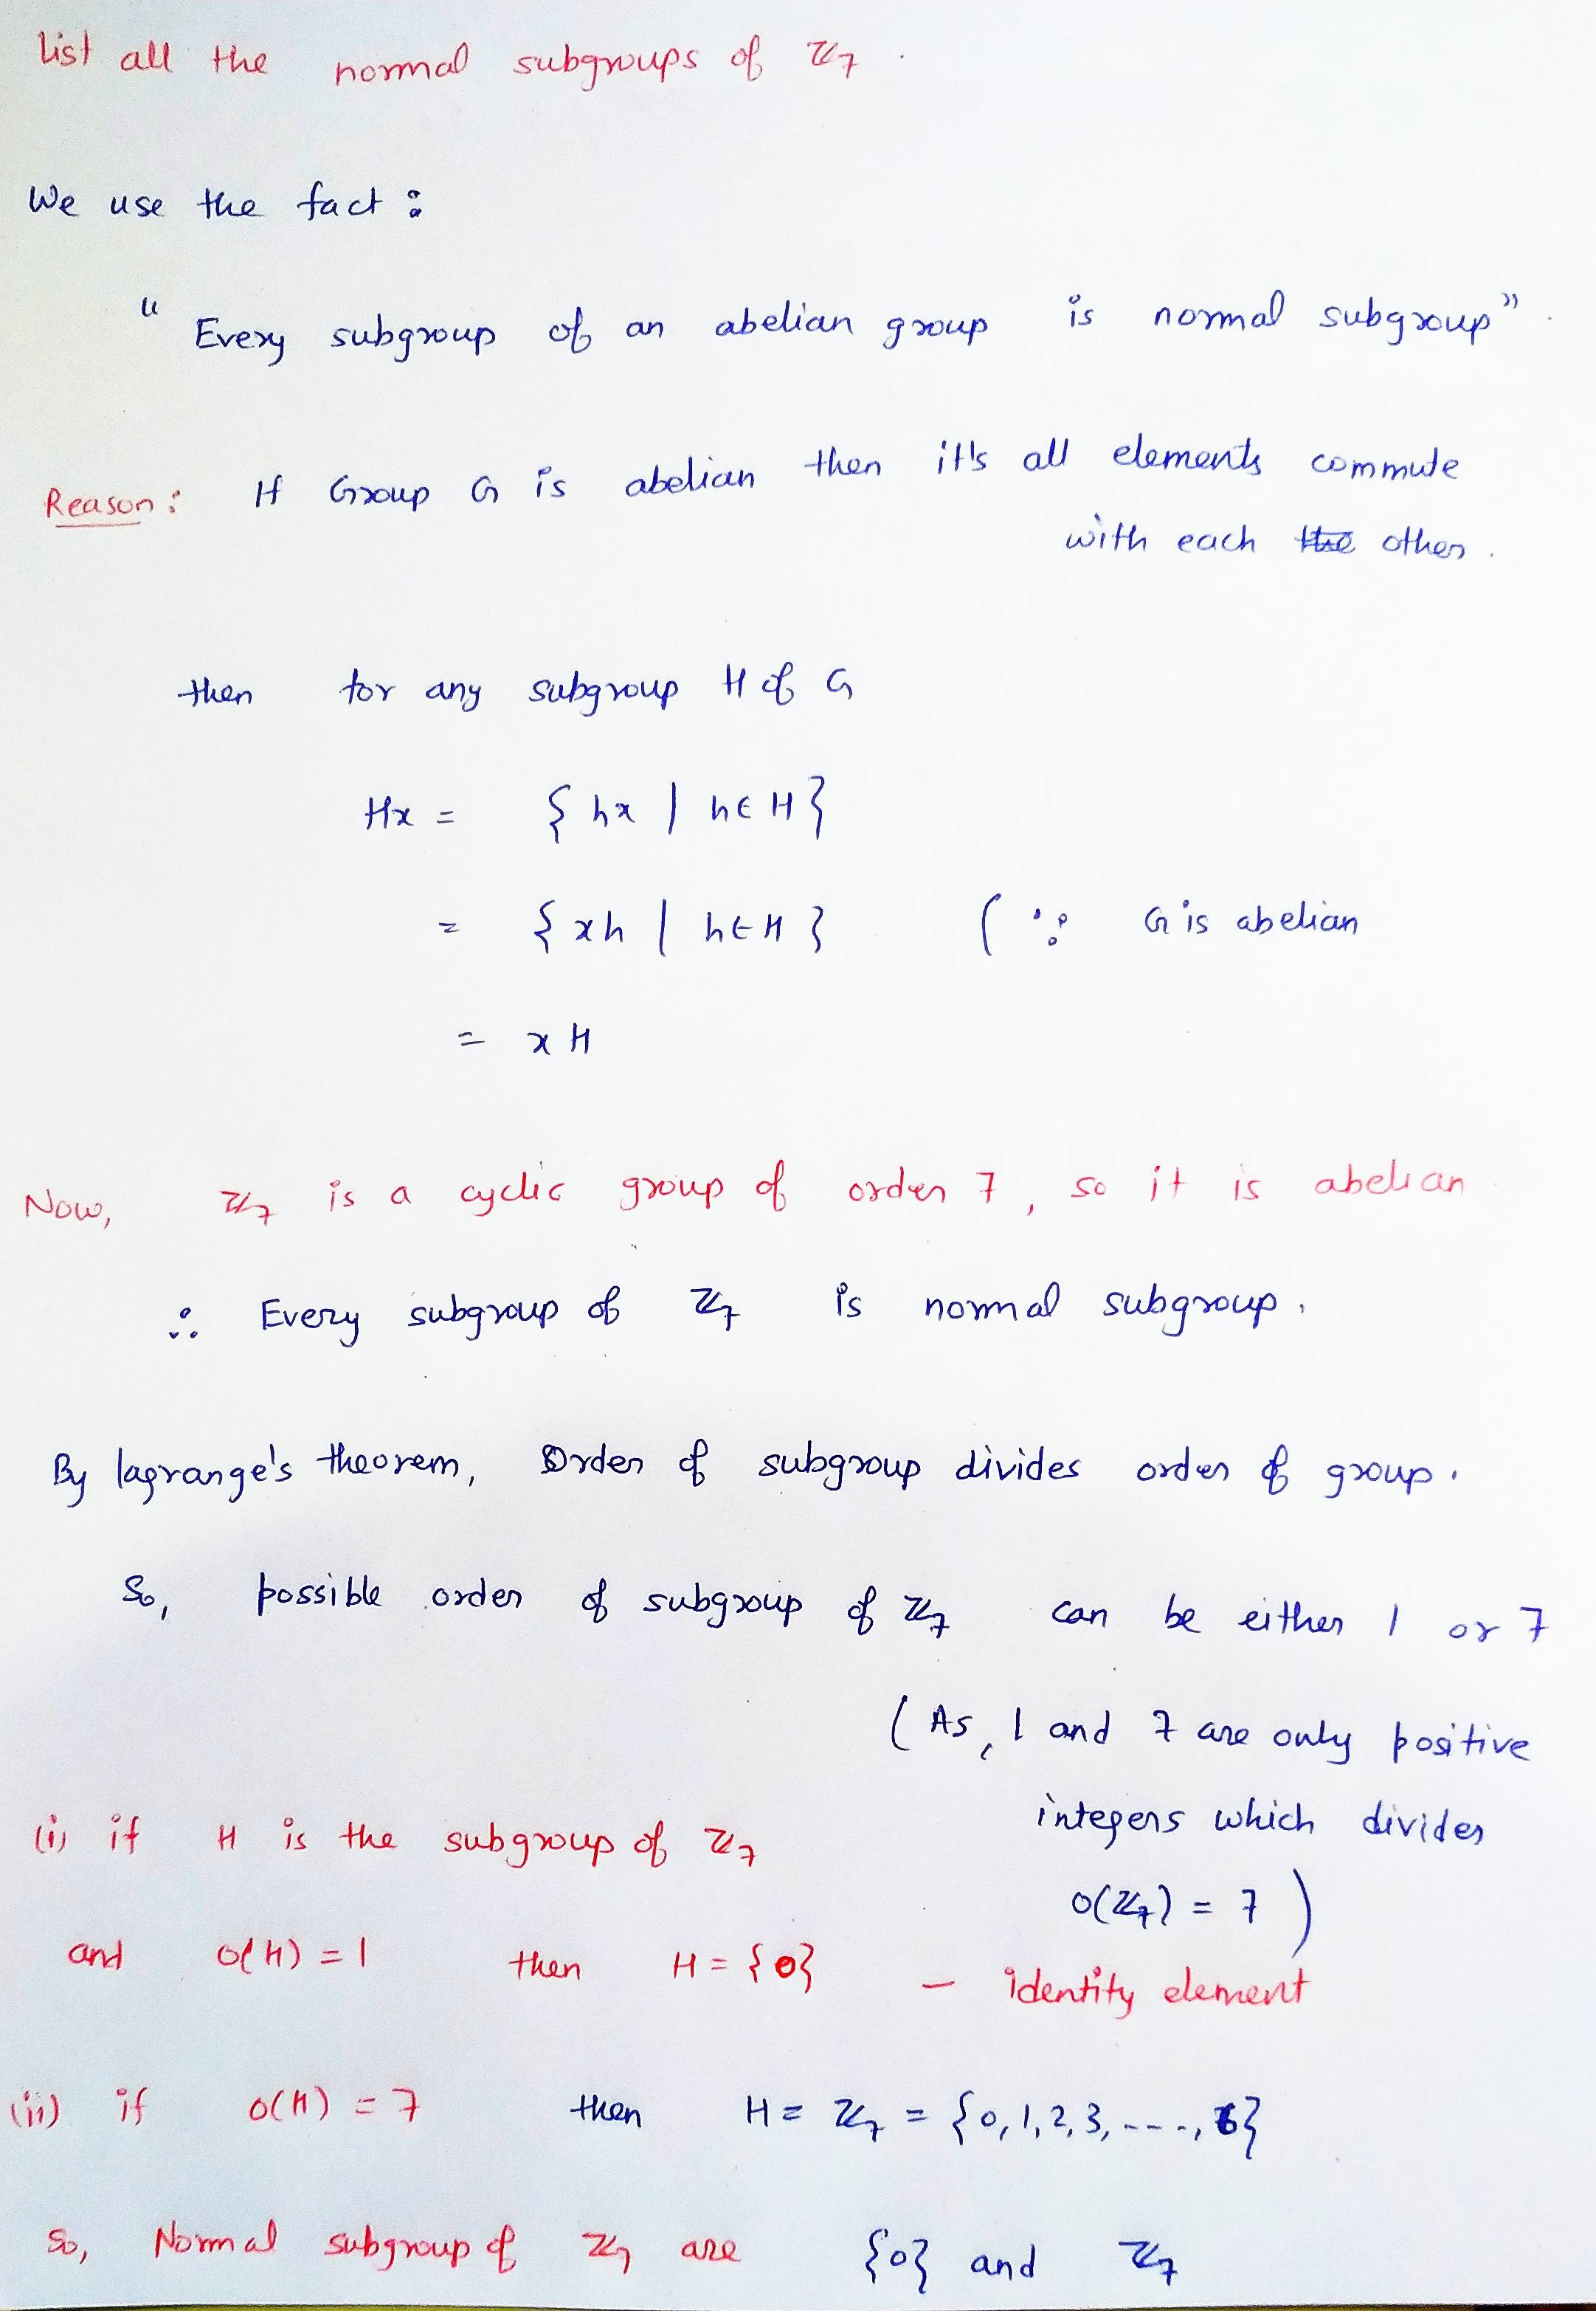 List all the normal subgroups of ℤ7.
We use the fact :
" Every subgroup of an abelian group is normal subgroup".
Reason : If Group G is abelian then it's all elements commute
with each the other.
then for any subgroup H of G
Hx = { hx | h∈H }
= { xh | h∈H } ( ∵ G is abelian
= xH
Now, ℤ7 is a cyclic group of order 7, so it is abelian.
∴ Every subgroup of ℤ7 is normal subgroup.
By lagrange's theorem, Order of subgroup divides order of group.
So, possible order of subgroup of ℤ7 can be either 1 or 7
( As, 1 and 7 are only positive
integers which divides
o(ℤ7) = 7 )
(i) if H is the subgroup of ℤ7
and o(H) = 1 then H = {0} – identity element
(ii) if o(H) = 7 then H = ℤ7 = {0, 1, 2, 3, ----, 6}
So, Normal subgroup of ℤ7 are {0} and ℤ7